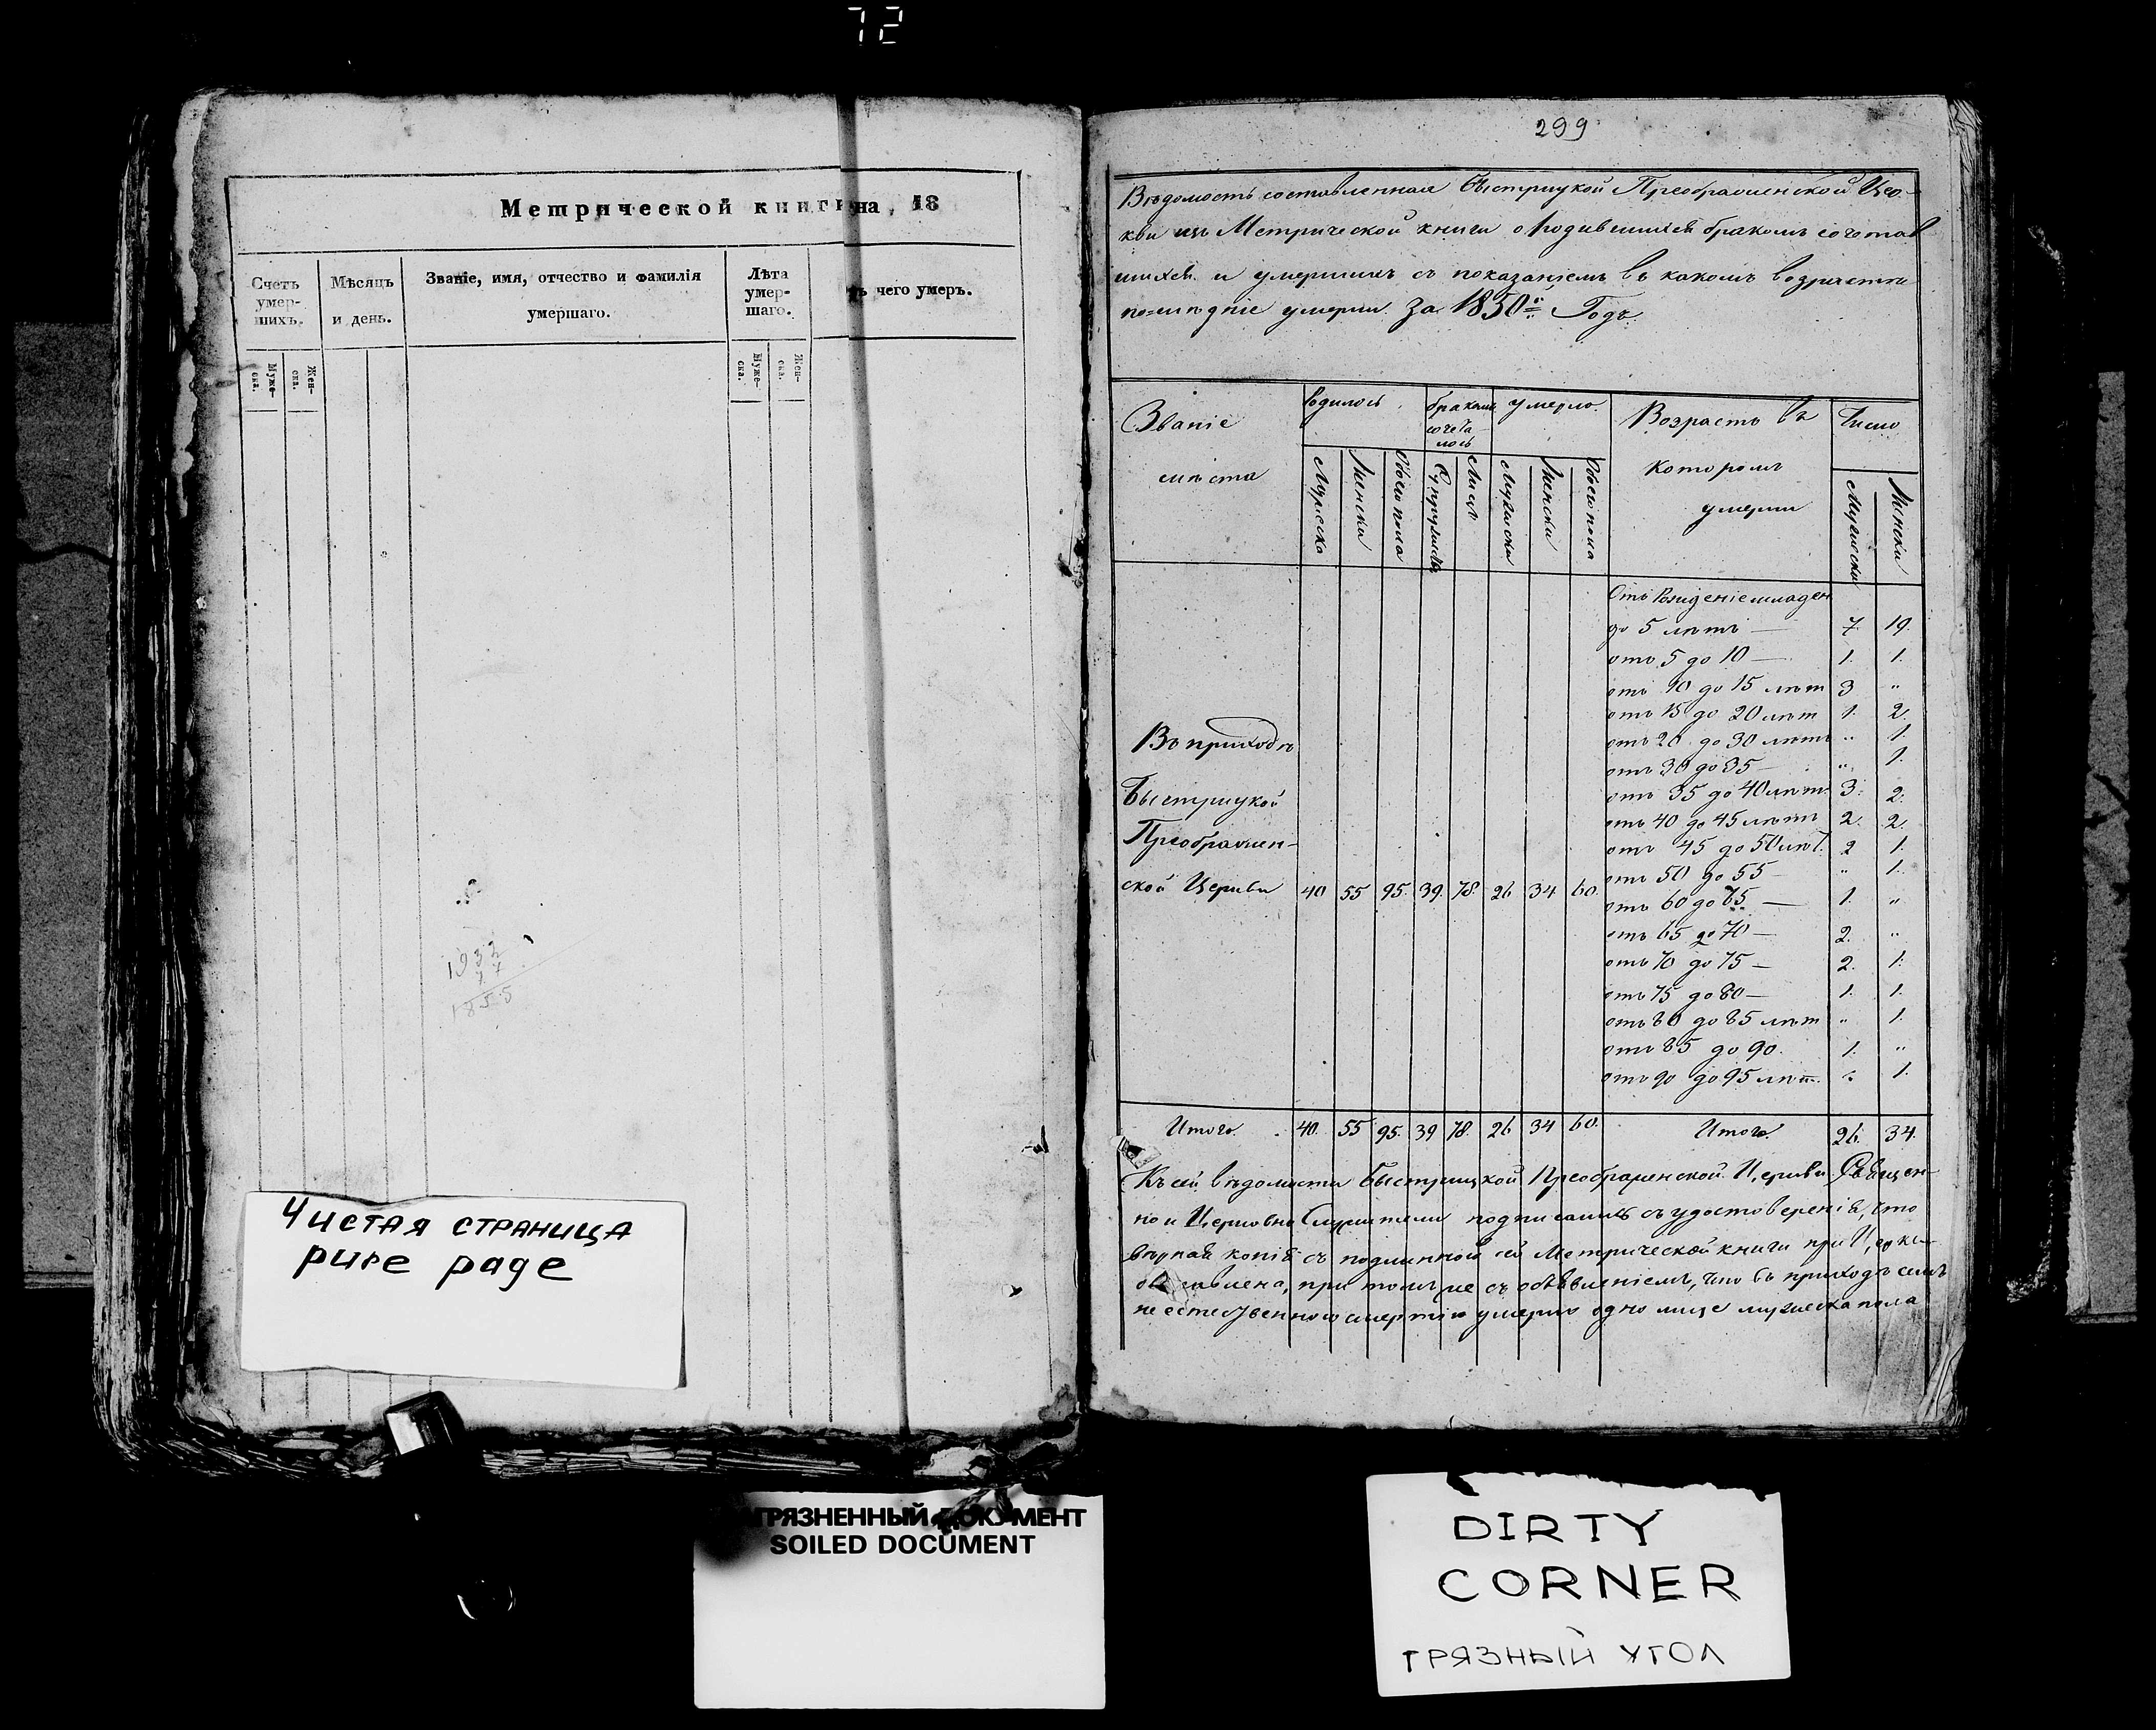 72
Метрической книги на 18
Счетъ умер-шихъ.
Мѣсяцъ и день.
Званіе, имя, отчество и фамилія умершаго.
Лѣта умер-шаго.
чего умеръ.
Муже-ска.
Жен-ска.
Муже-ска.
Жен-ска.
1932
77
1855
Чистая страница
pure page
299
Вѣдомость составленная Быстрицкой Преображенской Цер-
кви изъ Метрической книги о родившихся бракомъ сочетав
шихся и умершихъ съ показаніемъ въ какомъ возрастѣ
послѣдніе умерли за 1850й Годъ
Званіе мѣста
родилось
бракомъ сочета-лось
умерло
Возрастъ въ которомъ умерли
Число
Мужска
Женска
Обоего пола
Супружествъ
Лицъ
Мужеска
Женска
Обоего пола
Мужеска
Женска
Отъ Рожденіе младен
до 5 лѣтъ — 7. 19.
отъ 5 до 10 — 1. 1.
отъ 10 до 15 лѣт 3 "
отъ 15 до 20 лѣт 1. 2
отъ 20 до 30 лѣтъ " 1.
отъ 30 до 35 — " 1.
отъ 35 до 40 лѣт. 3. 2.
отъ 40 до 45 лѣтъ 2. 2.
отъ 45 до 50 лѣт. 2 1.
отъ 50 до 55 — " 1.
отъ 60 до 65 — 1. "
отъ 65 до 70 — 2. "
отъ 70 до 75 — 2. 1.
отъ 75 до 80 — 1. 1.
отъ 80 до 85 лѣт " 1.
отъ 85 до 90. 1. "
отъ 90 до 95 лѣт. " 1.
Въ приходѣ
Быстрицкой
Преображен-
ской Церкви 40 55 95. 39. 78. 26 34 60.
Итого. 40. 55 95. 39 78. 26 34 60. Итого. 26. 34.
Къ сей вѣдомости Быстрицкой Преображенской Церкви Священ-
но и Церковно Служители подписались съ удостовереніѣ, что
вѣрная копіѣ съ подлинной ей Метрической книги при Церкви
оставлена, при томъ же съ объявленіемъ, что въ приходѣ семъ
не естественною смертію умерло одно лице мужеска пола
ГРЯЗНЕННЫЙ ДОКУМЕНТ
SOILED DOCUMENT
DIRTY
CORNER
ГРЯЗНЫЙ УГОЛ